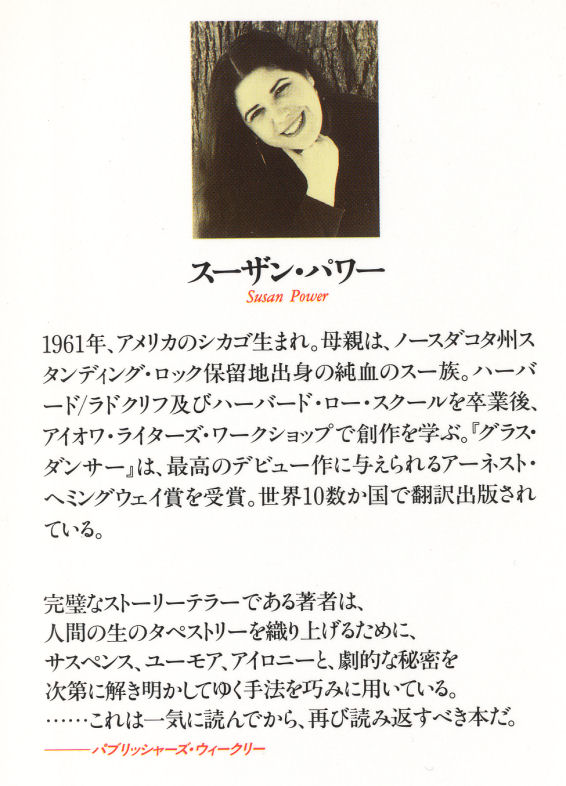 スーザン・パワー
Susan Power
1961年、アメリカのシカゴ生まれ。母親は、ノースダコタ州ス
タンディング・ロック保留地出身の純血のスー族。ハーバ
ード/ラドクリフ及びハーバード・ロー・スクールを卒業後、
アイオワ・ライターズ・ワークショップで創作を学ぶ。『グラス・
ダンサー』は、最高のデビュー作に与えられるアーネスト・
ヘミングウェイ賞を受賞。世界10数か国で翻訳出版され
ている。
完璧なストーリーテラーである著者は、
人間の生のタペストリーを織り上げるために、
サスペンス、ユーモア、アイロニーと、劇的な秘密を
次第に解き明かしてゆく手法を巧みに用いている。
……これは一気に読んでから、再び読み返すべき本だ。
——パブリッシャーズ・ウィークリー